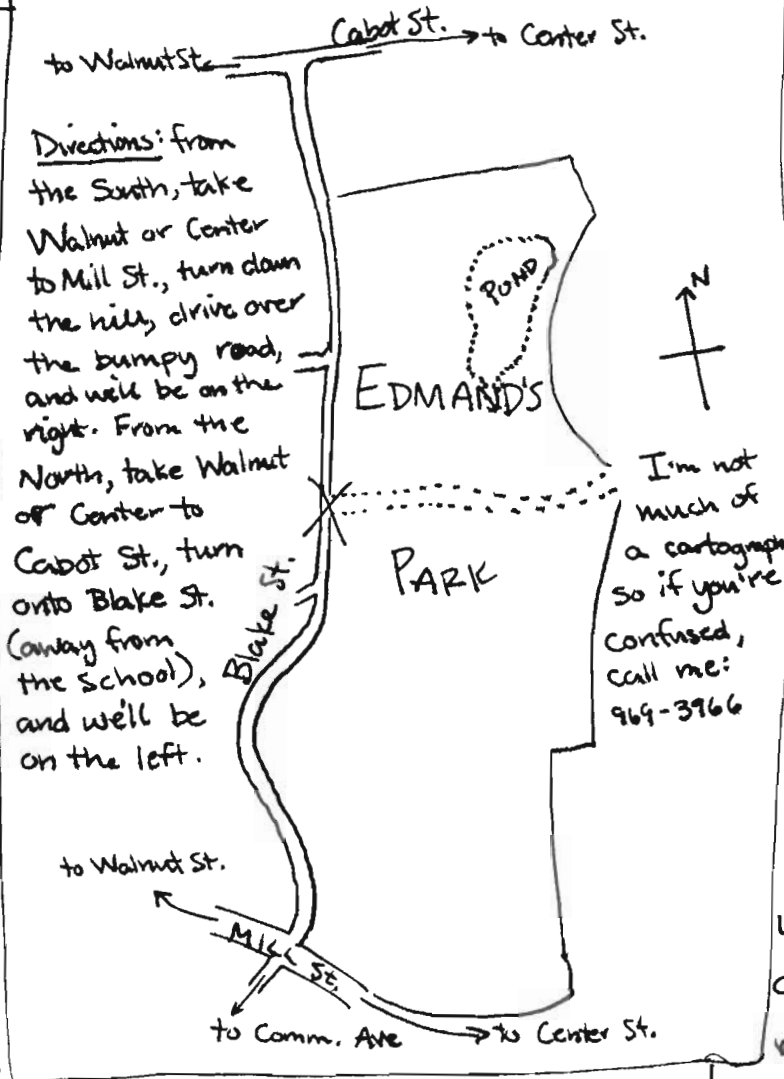 Cabot St.
to Walnut St.
to Center St.
Directions: from
the South, take
Walnut or Center
to Mill St., turn down
the hill, drive over
the bumpy road,
and we'll be on the
right. From the
North, take Walnut
or Center to
Cabot St., turn
onto Blake St.
(away from
the school),
and we'll be
on the left.
POND
N
EDMAND'S
PARK
Blake St.
I'm not
much of
a cartograph
so if you're
confused,
call me:
969-3966
to Walnut St.
Mill St.
to Comm. Ave
to Center St.